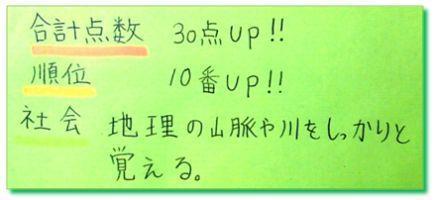 合計点数 30点up!!
順位 10番up!!
社会 地理の山脈や川をしっかりと
覚える。